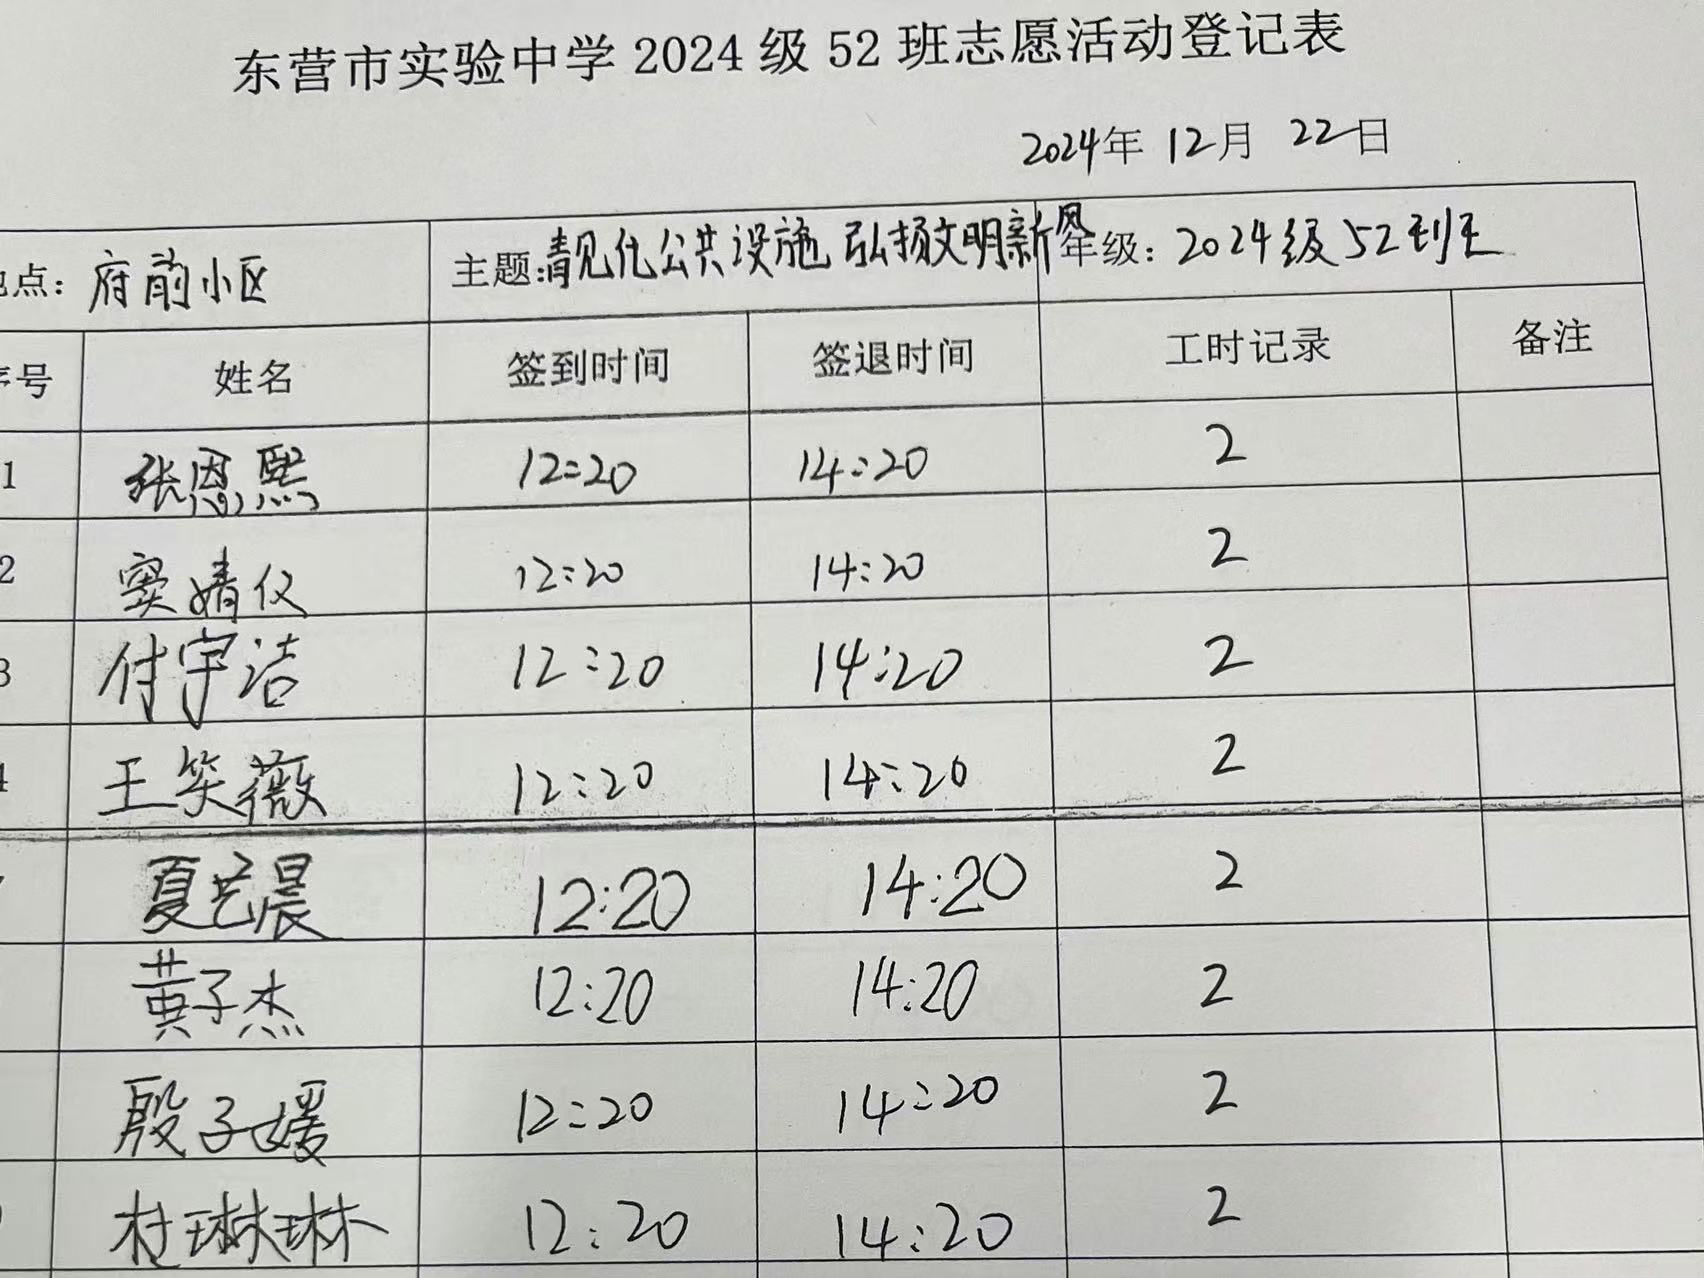 东营市实验中学 2024 级 52 班志愿活动登记表
2024年 12月 22日
地点：府前小区 主题：靓化公共设施 弘扬文明新风 年级：2024级52班
序号 姓名 签到时间 签退时间 工时记录 备注
1 张恩熙 12:20 14:20 2
2 窦婧仪 12:20 14:20 2
3 付宇洁 12:20 14:20 2
4 王笑薇 12:20 14:20 2
夏艺晨 12:20 14:20 2
黄子杰 12:20 14:20 2
殷子媛 12:20 14:20 2
杜琳琳 12:20 14:20 2